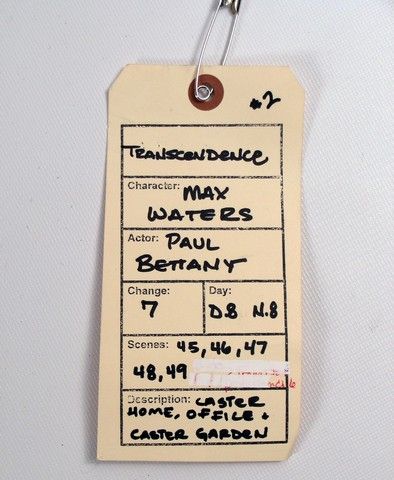 #2
TRANSCENDENCE
Character: MAX
WATERS
Actor: PAUL
BETTANY
Change: Day:
7 D.8 N.8
Scenes: 45, 46, 47
48, 49
Description: CASTER
HOME, OFFICE +
CASTER GARDEN